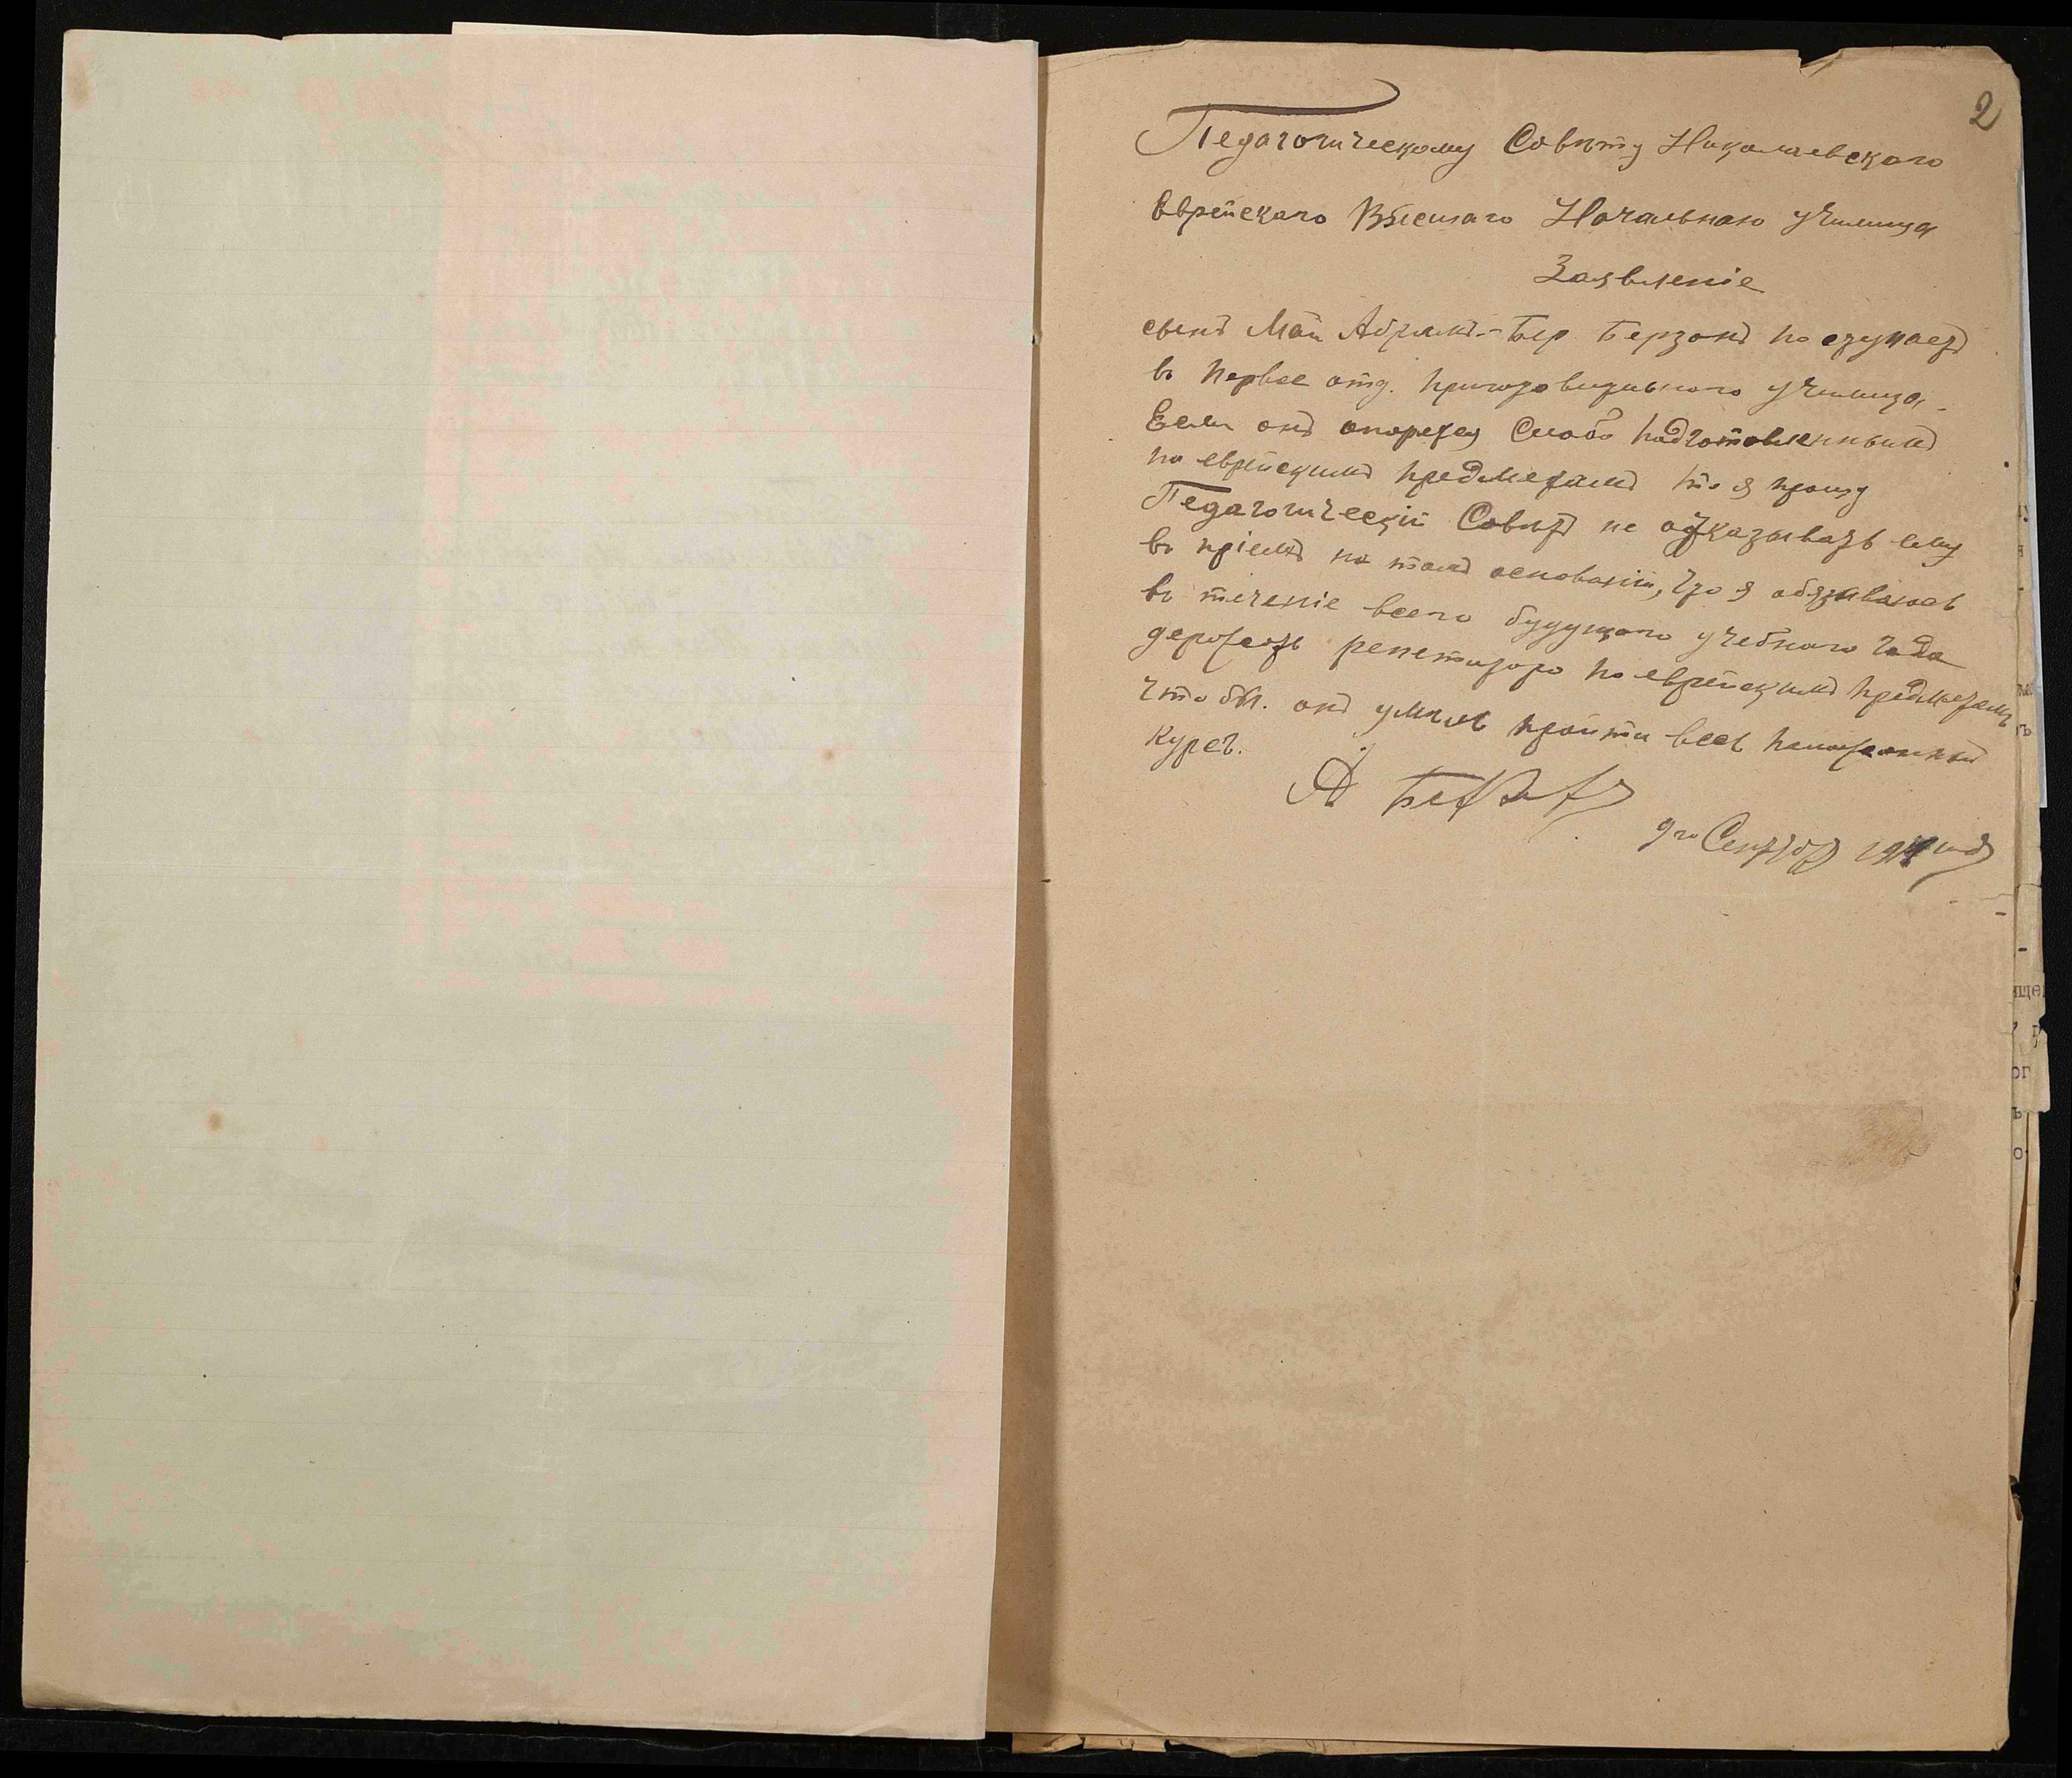 2
Педагогическому Совѣту Николаевскаго
Еврейскаго Высшаго Начальнаго училища
Заявленіе
сынъ Мой Абрамъ-Бер Берзонъ поступаетъ
въ первое отд. приготовительнаго училища.
Если онъ окажется Слабо подготовленнымъ
по еврейскимъ предметамъ то я прошу
Педагогическій Совѣтъ не отказывать ему
въ пріемѣ на томъ основаніи, что я обязываюсь
въ теченіе всего будущаго учебнаго года
держать репетитора по еврейскимъ предметамъ
что бы. онъ умѣлъ пройти весь
курсъ.
А
9го